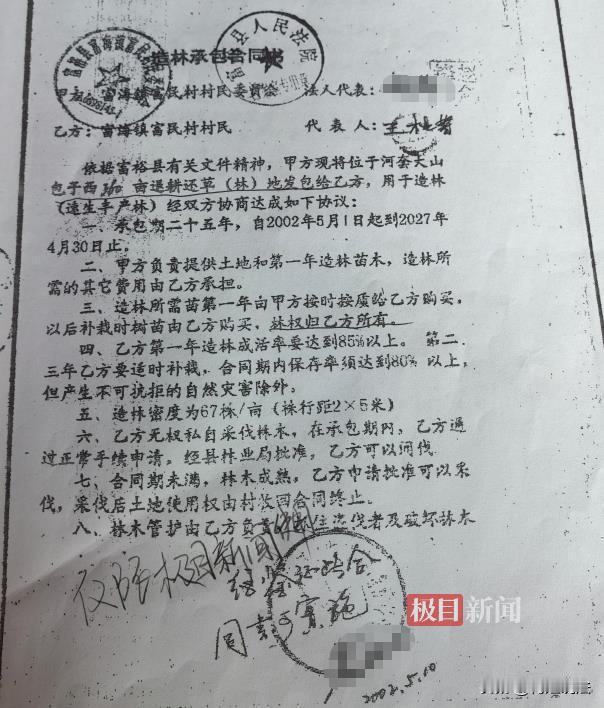 造林承包合同书
甲方：富海镇富民村村民委员会 法人代表：
乙方：富海镇富民村村民 代表人：
依据富裕县有关文件精神，甲方现将位于河套大山
包子西 亩退耕还草（林）地发包给乙方，用于造林
（速生丰产林）经双方协商达成如下协议：
一、承包期二十五年，自2002年5月1日起到2027年
4月30日止。
二、甲方负责提供土地和第一年造林苗木，造林所
需的其它费用由乙方承担。
三、造林所需苗第一年由甲方按时按质给乙方购买，
以后补栽时树苗由乙方购买，林权归乙方所有。
四、乙方第一年造林成活率要达到85%以上。第二、
三年乙方要适时补栽，合同期内保存率须达到80%以上，
但产生不可抗拒的自然灾害除外。
五、造林密度为67株/亩（株行距2×5米）
六、乙方无权私自采伐林木，在承包期内，乙方通
过正常手续申请，经县林业局批准，乙方可以间伐
七、合同期未满，林木成熟，乙方申请批准可以采
伐，采伐后土地使用权由村收回合同终止。
八、林木管护由乙方负责 住盗伐者及破坏林木
仅限极目新闻
同意实施
2002.5.10
县人民法院
极目新闻